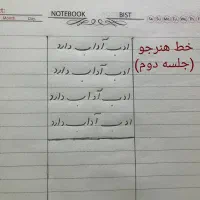 NOTEBOOK BIST
خط هنرجو
(جلسه دوم)
ادب آداب دارد
ادب آداب دارد
ادب آداب دارد
ادب آداب دارد